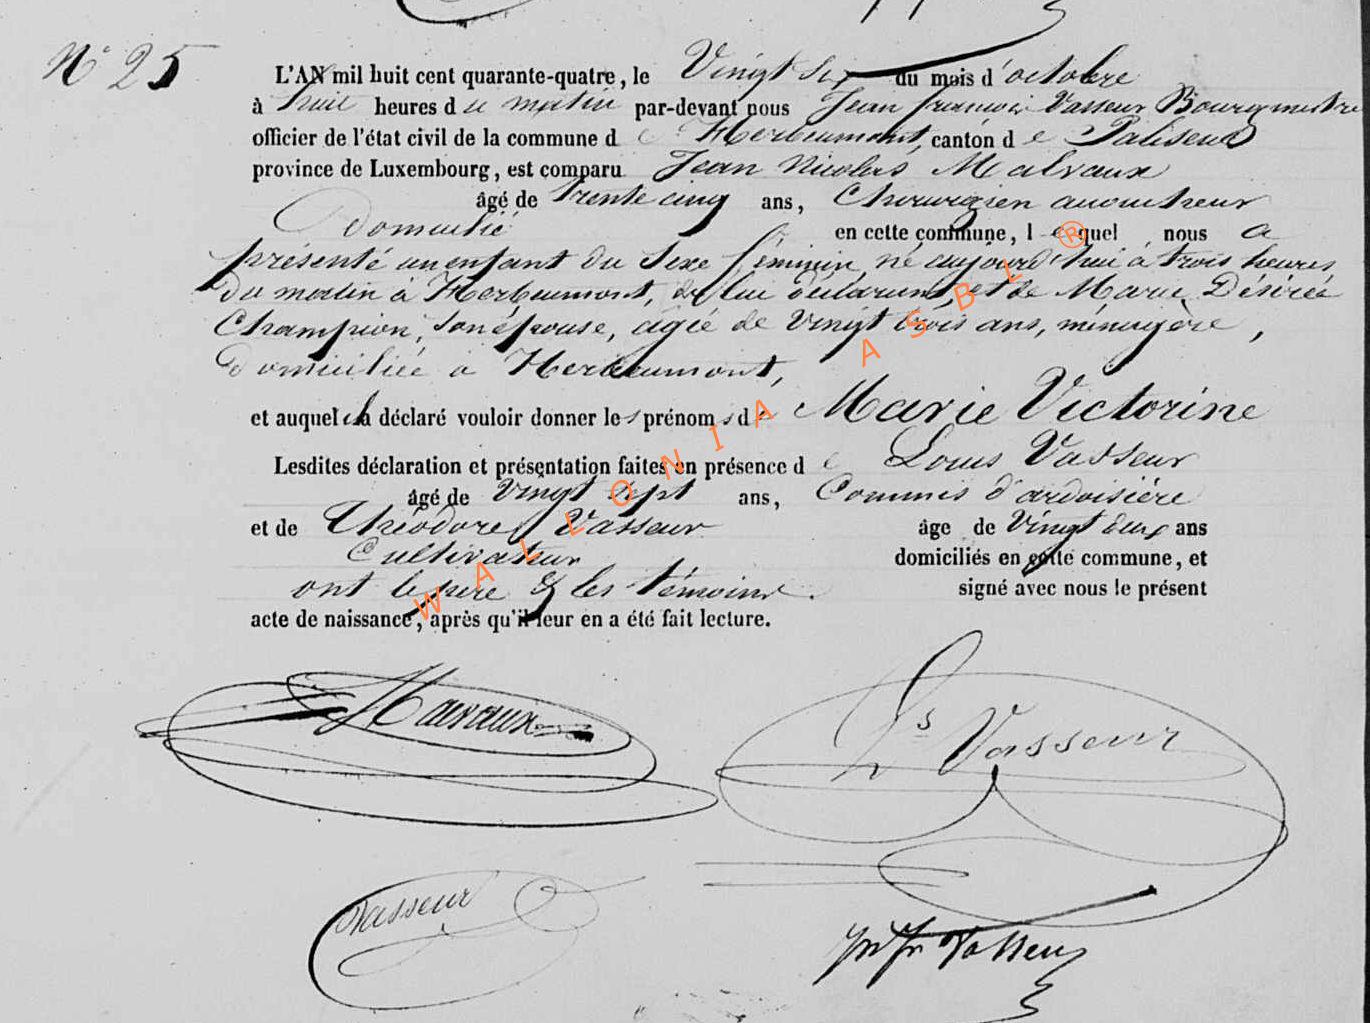 N° 25
L'AN mil huit cent quarante-quatre, le Vingt Six du mois d'octobre
à huit heures du matin par-devant nous Jean françois Vasseur Bourgmestre
officier de l'état civil de la commune de Herbeumont, canton de Paliseul
province de Luxembourg, est comparu Jean Nicolas Malvaux
âgé de trente cinq ans, Chirurgien accoucheur
domicilié en cette commune, lequel nous a
présenté un enfant du Sexe féminin, né aujourd'hui à trois heures
du matin à Herbeumont, de lui déclarant, et de Marie Désirée
Champion, son épouse, agée de vingt trois ans, ménagère,
domiciliée à Herbeumont,
et auquel il a déclaré vouloir donner les prénoms de Marie Victorine
Lesdites déclaration et présentation faites en présence de Louis Vasseur
âgé de vingt sept ans, Commis d'ardoisière
et de Théodore Vasseur âge de Vingt deux ans
Cultivateur domiciliés en cette commune, et
ont le père & les témoins signé avec nous le présent
acte de naissance, après qu'il leur en a été fait lecture.
Malvaux
Ls Vasseur
Vasseur
Jn Fr Vasseur
WALLONIA ASBL ®